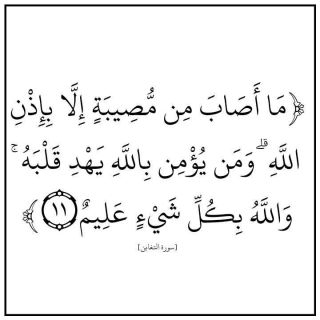 ﴿ مَا أَصَابَ مِن مُّصِيبَةٍ إِلَّا بِإِذْنِ
اللَّهِ ۗ وَمَن يُؤْمِن بِاللَّهِ يَهْدِ قَلْبَهُ ۚ
وَاللَّهُ بِكُلِّ شَيْءٍ عَلِيمٌ ١١ ﴾
[سورة التغابن]